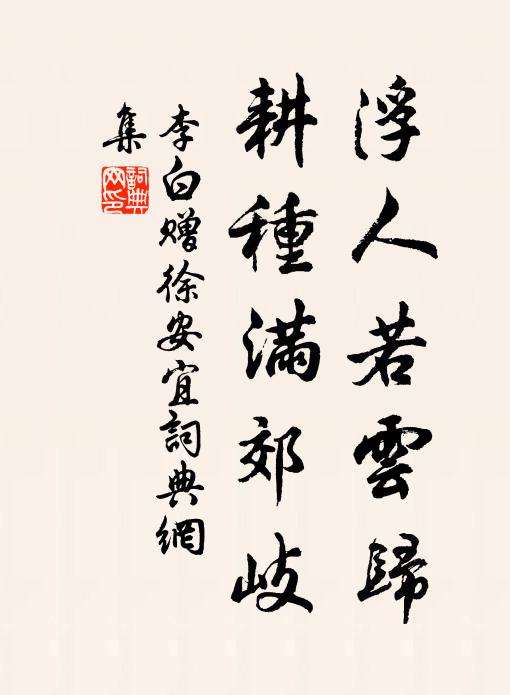 浮人若雲歸
耕種滿郊岐
李白贈徐安宜詞典網
集
詞典网印